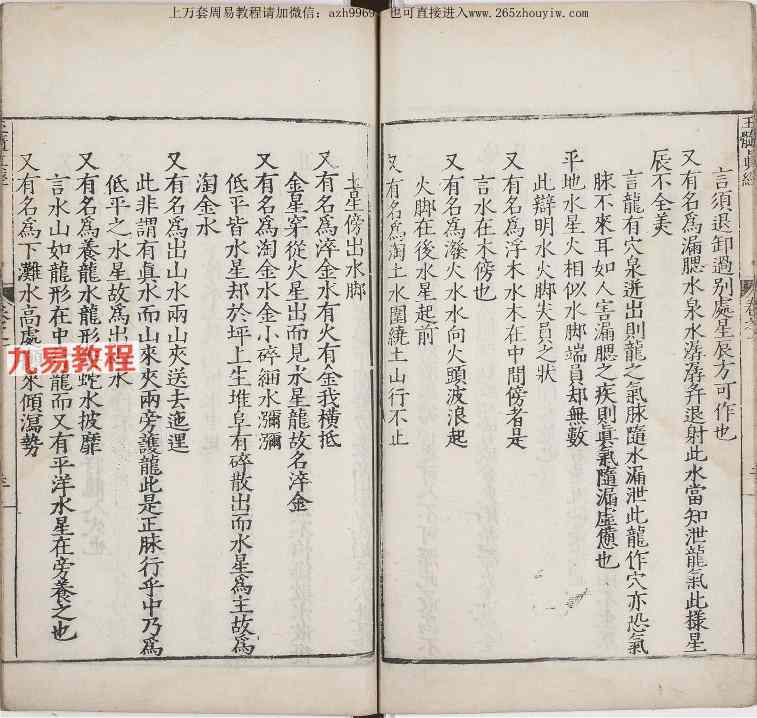 上万套周易教程请加微信：azh9969 也可直接进入www.265zhouyiw.com
玉髓真經
言須退卸過別處星辰方可作也
又有名爲漏腮水泉水潺潺弃退射此水當知泄龍氣此樣星
辰不全美
言龍有穴泉迸出則龍之氣脉隨水漏泄此龍作穴亦恐氣
脉不來耳如人害漏腮之疾則真氣隨漏虛憊也
平地水星火相似水脚端員却無數
此辯明水火脚失員之狀
又有名爲浮木水木在中間傍者是
言水在木傍也
又有名爲潑火水水向火頭波浪起
火脚在後水星起前
又有名爲淘土水圍繞土山行不止
土星傍出水脚
又有名爲淬金水有火有金我橫抵
金星穿從火星出而見水星龍故名淬金
又有名爲淘金水金小碎細水瀰瀰
低平皆水星却於坪上生堆阜有碎散出而水星爲主故爲
淘金水
又有名爲出山水兩山夾送去迤邐
此非謂有真水而山來夾兩旁護龍此是正脉行乎中乃爲
低平之水星故爲出 水
又有名爲養龍水龍形 蛇水披靡
言水山如龍形在中 龍而又有平洋水星在旁養之也
又有名爲下灘水高處 來傾瀉勢
九易教程